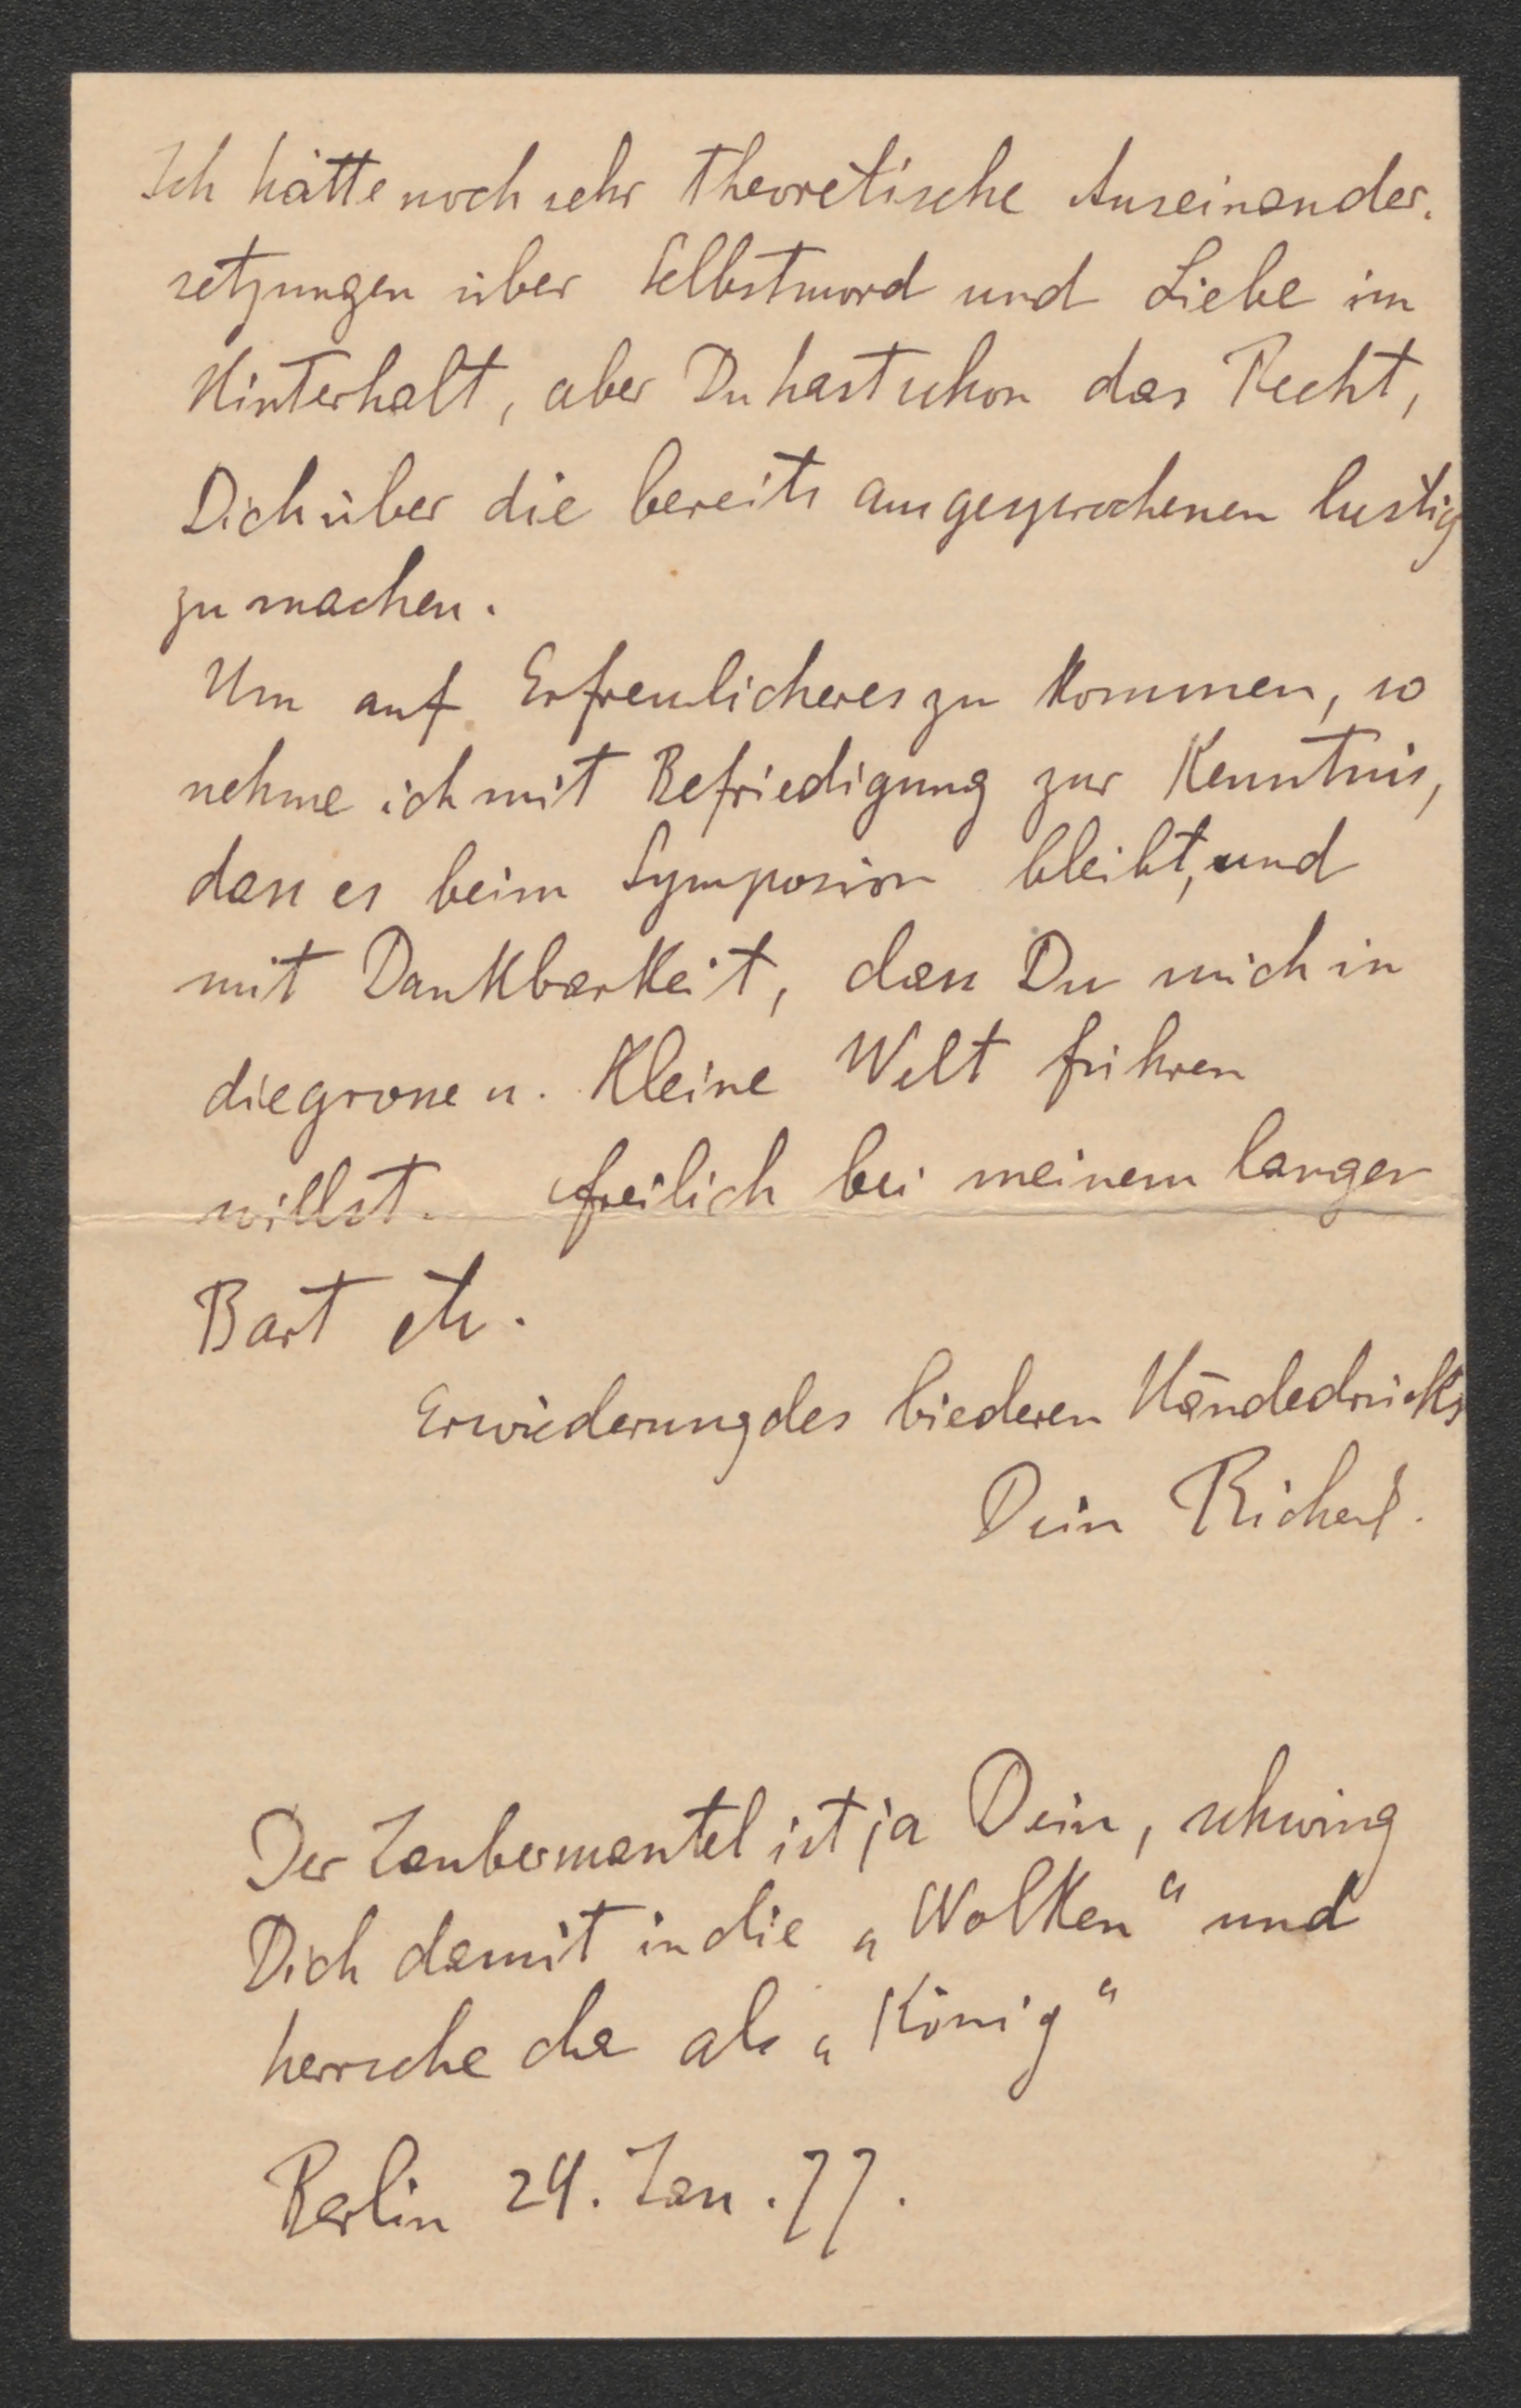 Ich hätte noch sehr theoretische Auseinander-
setzungen über Selbstmord und Liebe im
Hinterhalt, aber Du hast schon das Recht,
Dich über die bereits ausgesprochenen lustig
zu machen.
Um auf Erfreulicheres zu kommen, so
nehme ich mit Befriedigung zur Kenntnis,
dass es beim Symposion bleibt, und
mit Dankbarkeit, dass Du mich in
die grosse u. kleine Welt führen
willst. freilich bei meinem langen
Bart etc.
Erwiederung des biederen Händedrucks
Dein Richard.
Der Zaubermantel ist ja Dein, schwing
Dich damit in die „Wolken" und
herrsche da als „König"
Berlin 24. Jan. 77.